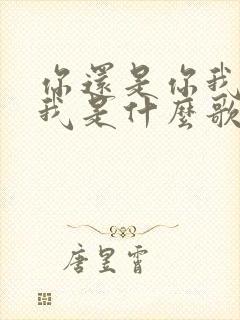 你還是你我
我是什麼歌
唐昱霄